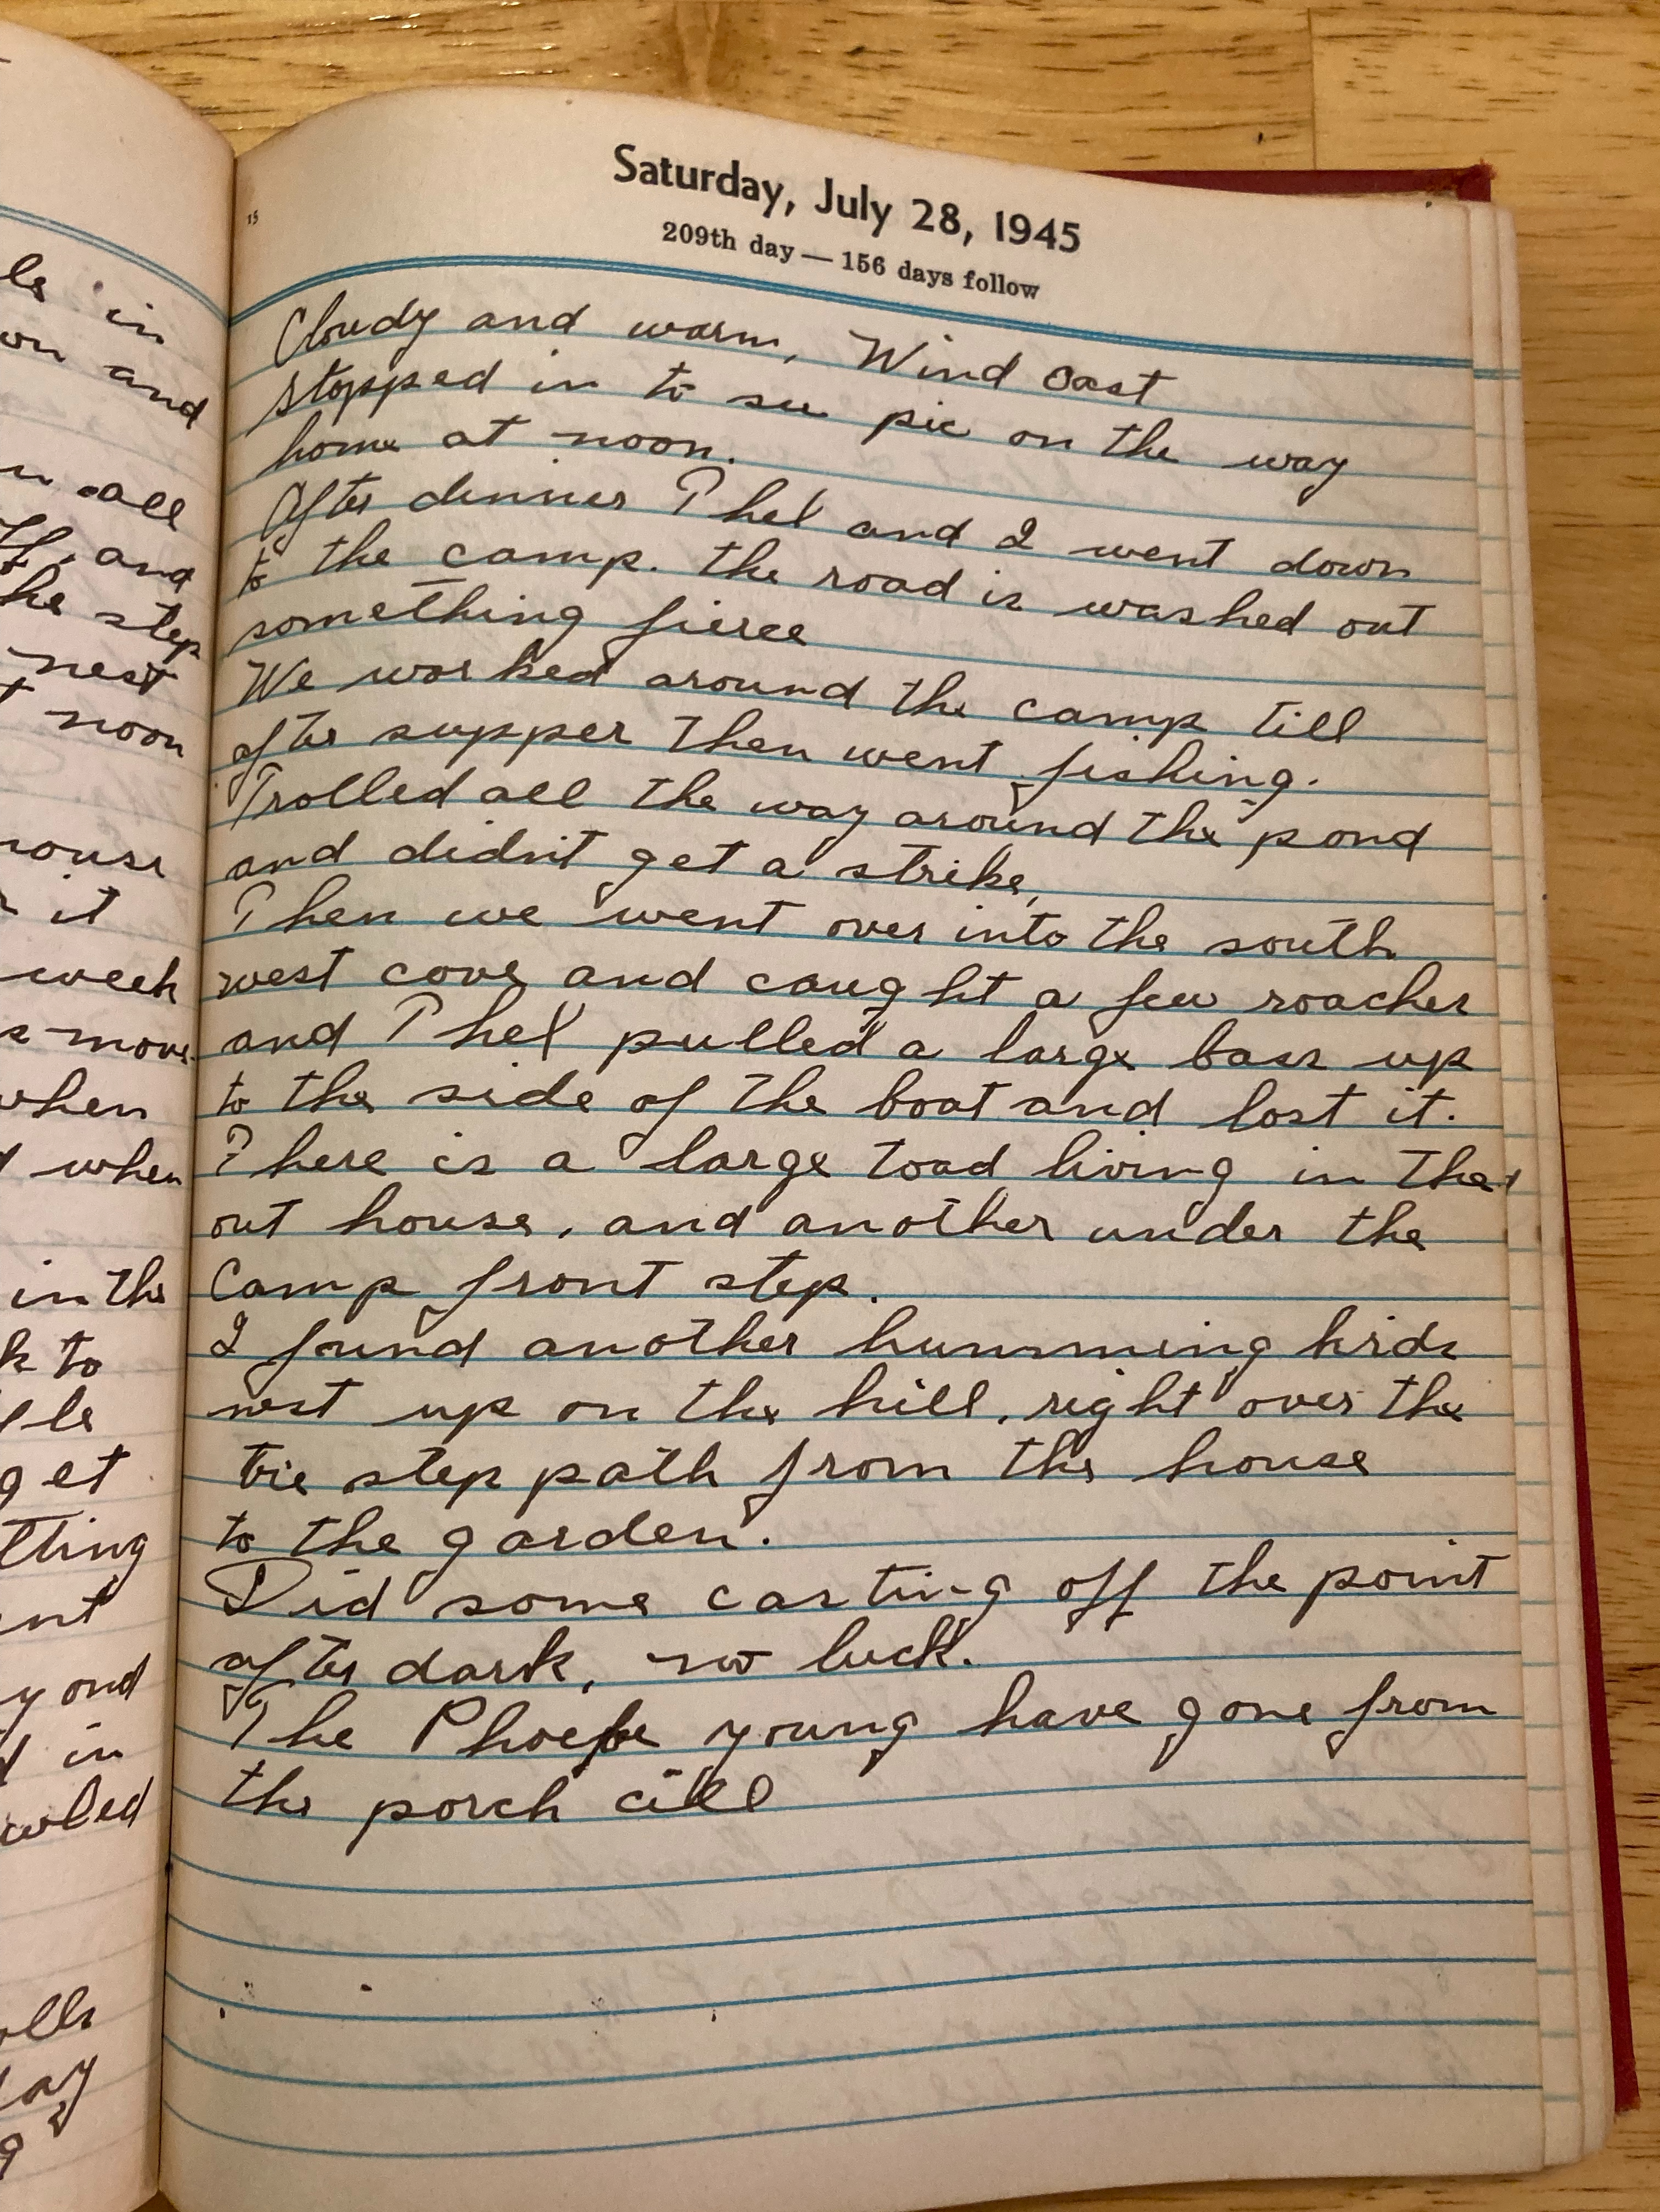 ls in
on and
all
and
he step
nest
noon
house
it
week
move
when
when
in the
k to
get
tting
nt
y and
in
wled
ells
ay
15
Saturday, July 28, 1945
209th day — 156 days follow
Cloudy and warm, Wind East
Stopped in to see pic on the way
home at noon.
After dinner Thel and I went down
to the camp. the road is washed out
something fierce
We worked around the camp till
after supper then went fishing.
Trolled all the way around the pond
and didn't get a strike,
Then we went over into the south
west cove and caught a few roaches
and Thel pulled a large bass up
to the side of the boat and lost it.
There is a large toad living in the
out house, and another under the
Camp front step.
I found another humming birds
nest up on the hill, right over the
tie step path from the house
to the garden.
Did some casting off the point
after dark, no luck.
The Phoebe young have gone from
the porch cill